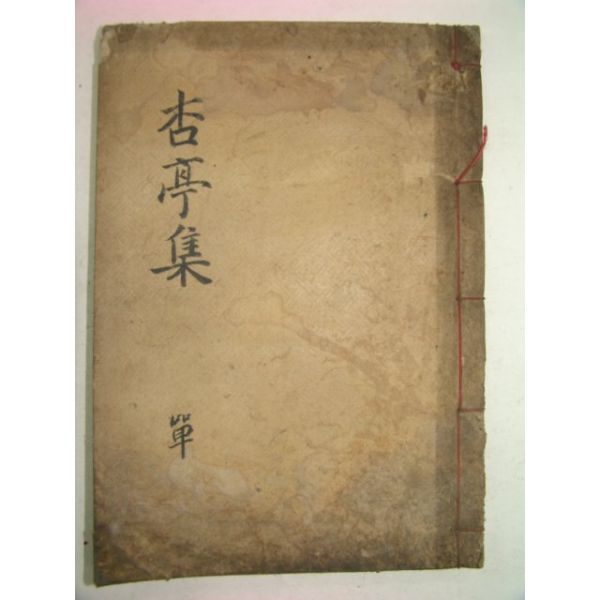 杏亭集
單